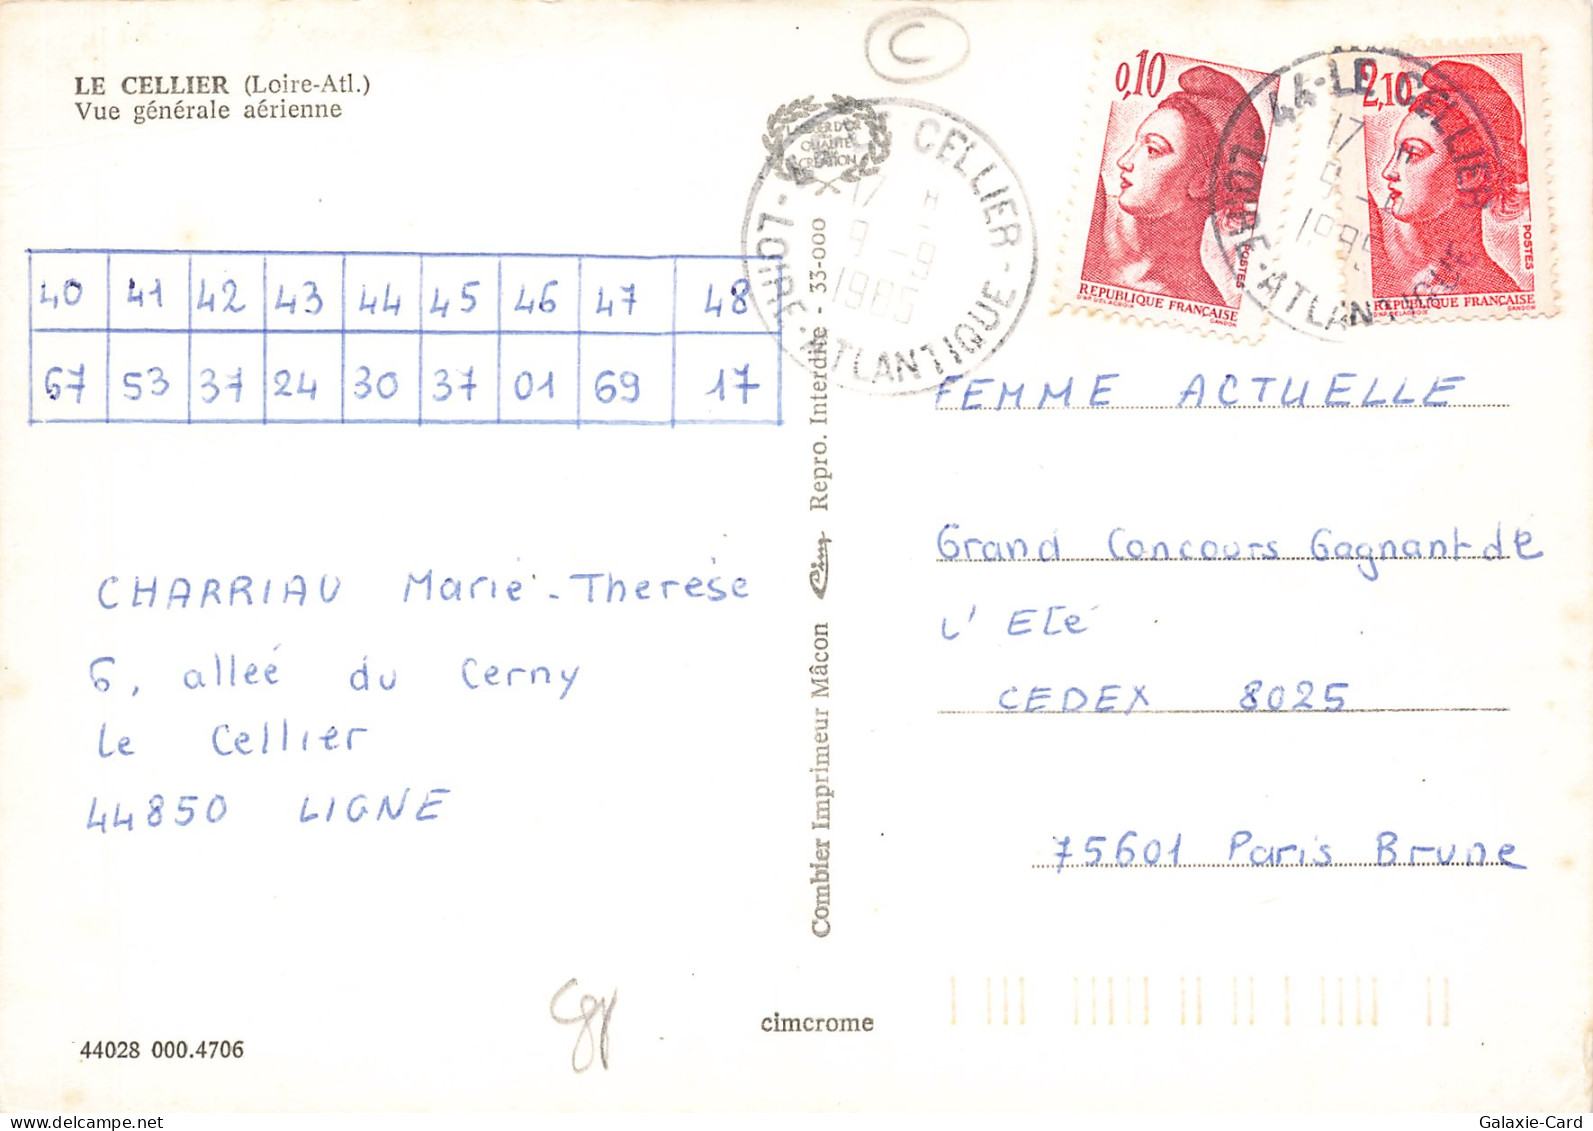 LE CELLIER (Loire-Atl.)
Vue générale aérienne
40 41 42 43 44 45 46 47 48
67 53 37 24 30 37 01 69 17
CHARRIAU Marie-Therése
6, alleé du Cerny
Le Cellier
44850 LIGNE
44028 000.4706
cimcrome
Combier Imprimeur Mâcon Cim Repro. Interdite - 33-000
LAURIER D'OR
QUALITÉ
CRÉATION
C
CELLIER - LOIRE-ATLANTIQUE -
17 H
9 -8
1985
0,10
POSTES
REPUBLIQUE FRANÇAISE
D'AP. DELACROIX GANDON
44-LE CELLIER LOIRE-ATLANTIQUE
17 H
9 -8
1985
2,10
POSTES
REPUBLIQUE FRANÇAISE
D'AP. DELACROIX GANDON
FEMME ACTUELLE
Grand Concours Gagnant de
L' Eté
CEDEX 8025
75601 Paris Brune
Galaxie-Card